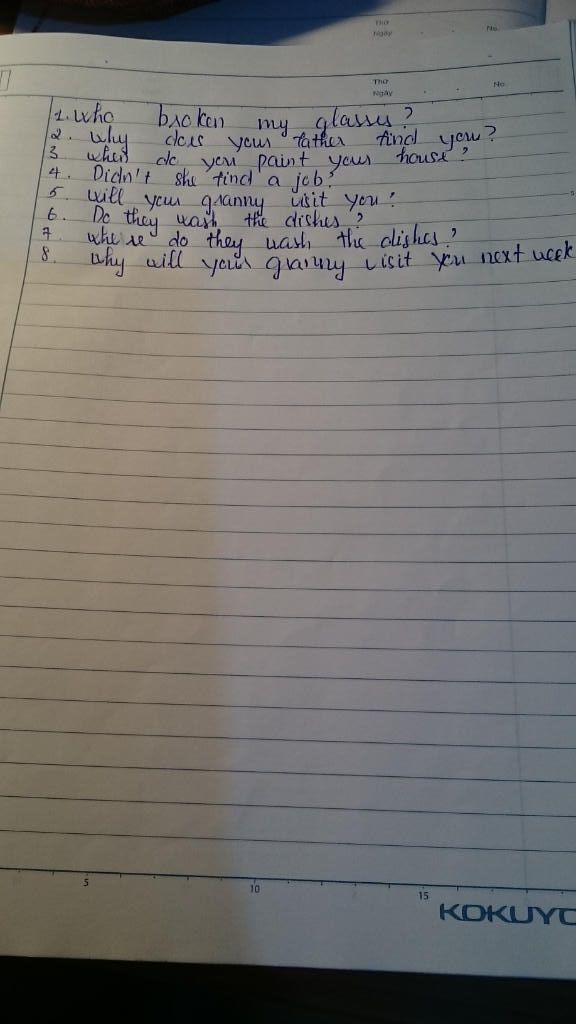 Thứ
Ngày
No.
Thứ
Ngày
No.
1. Who broken my glasses?
2. Why does your father find you?
3 when do you paint your house?
4. Didn't she find a job?
5. Will your granny visit you?
6. Do they wash the dishes?
7. where do they wash the dishes?
8. Why will your granny visit you next week
5
10
15
KOKUYO